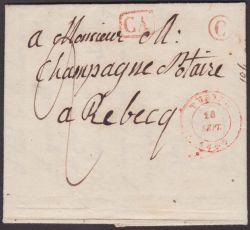 CA
C
a Monsieur M:
Champagne Notaire
a Rebecq
18
SEPT.